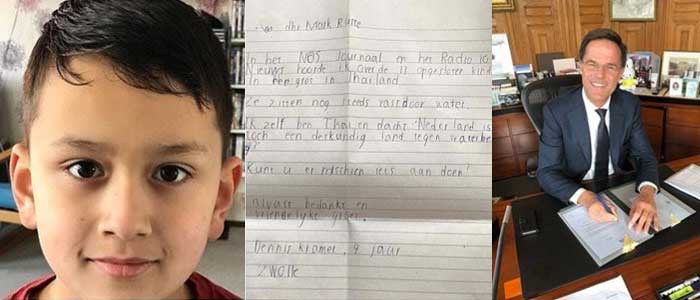 dhr Mark Rutte
In het NOS Journaal en het Radio 10
Nieuws hoorde ik over de 11 opgesloten kind
in een grot in Thailand
Ze zitten nog steeds vast door water.
Ik zelf ben Thai en dacht Nederland is
toch een deskundig land tegen water
Kunt u er misschien iets aan doen?
alvast bedankt en
vriendelijke groet,
Dennis Kromer, 9 jaar
Zwolle